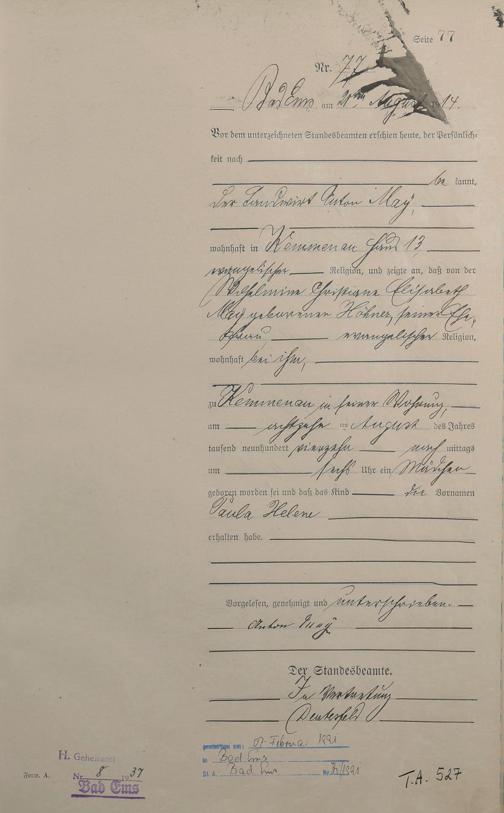 Seite 77
Nr. 77
Bad Ems am August 1914.
Vor dem unterzeichneten Standesbeamten erschien heute, der Persönlich-
keit nach
be kannt,
der Landwirt Anton May,
wohnhaft in Kemmenau Haus 13,
evangelischer Religion, und zeigte an, daß von der
Wilhelmine Christiane Elisabeth
May geborenen Höhner, seiner Ehe-
frau, evangelischer Religion,
wohnhaft bei ihm,
zu Kemmenau in seiner Wohnung,
am achtzehn ten August des Jahres
tausend neunhundert vierzehn nach mittags
um sechs Uhr ein Mädchen
geboren worden sei und daß das Kind die Vornamen
Paula Helene
erhalten habe.
Vorgelesen, genehmigt und unterschrieben.
Anton May
Der Standesbeamte.
In Vertretung
H. Geheiratet
Nr. 8 1937
Bad Ems
Form. A.
07. Februa 1991
in Bad Ems
St. A. Bad Ems Nr. /1991
T.A. 527